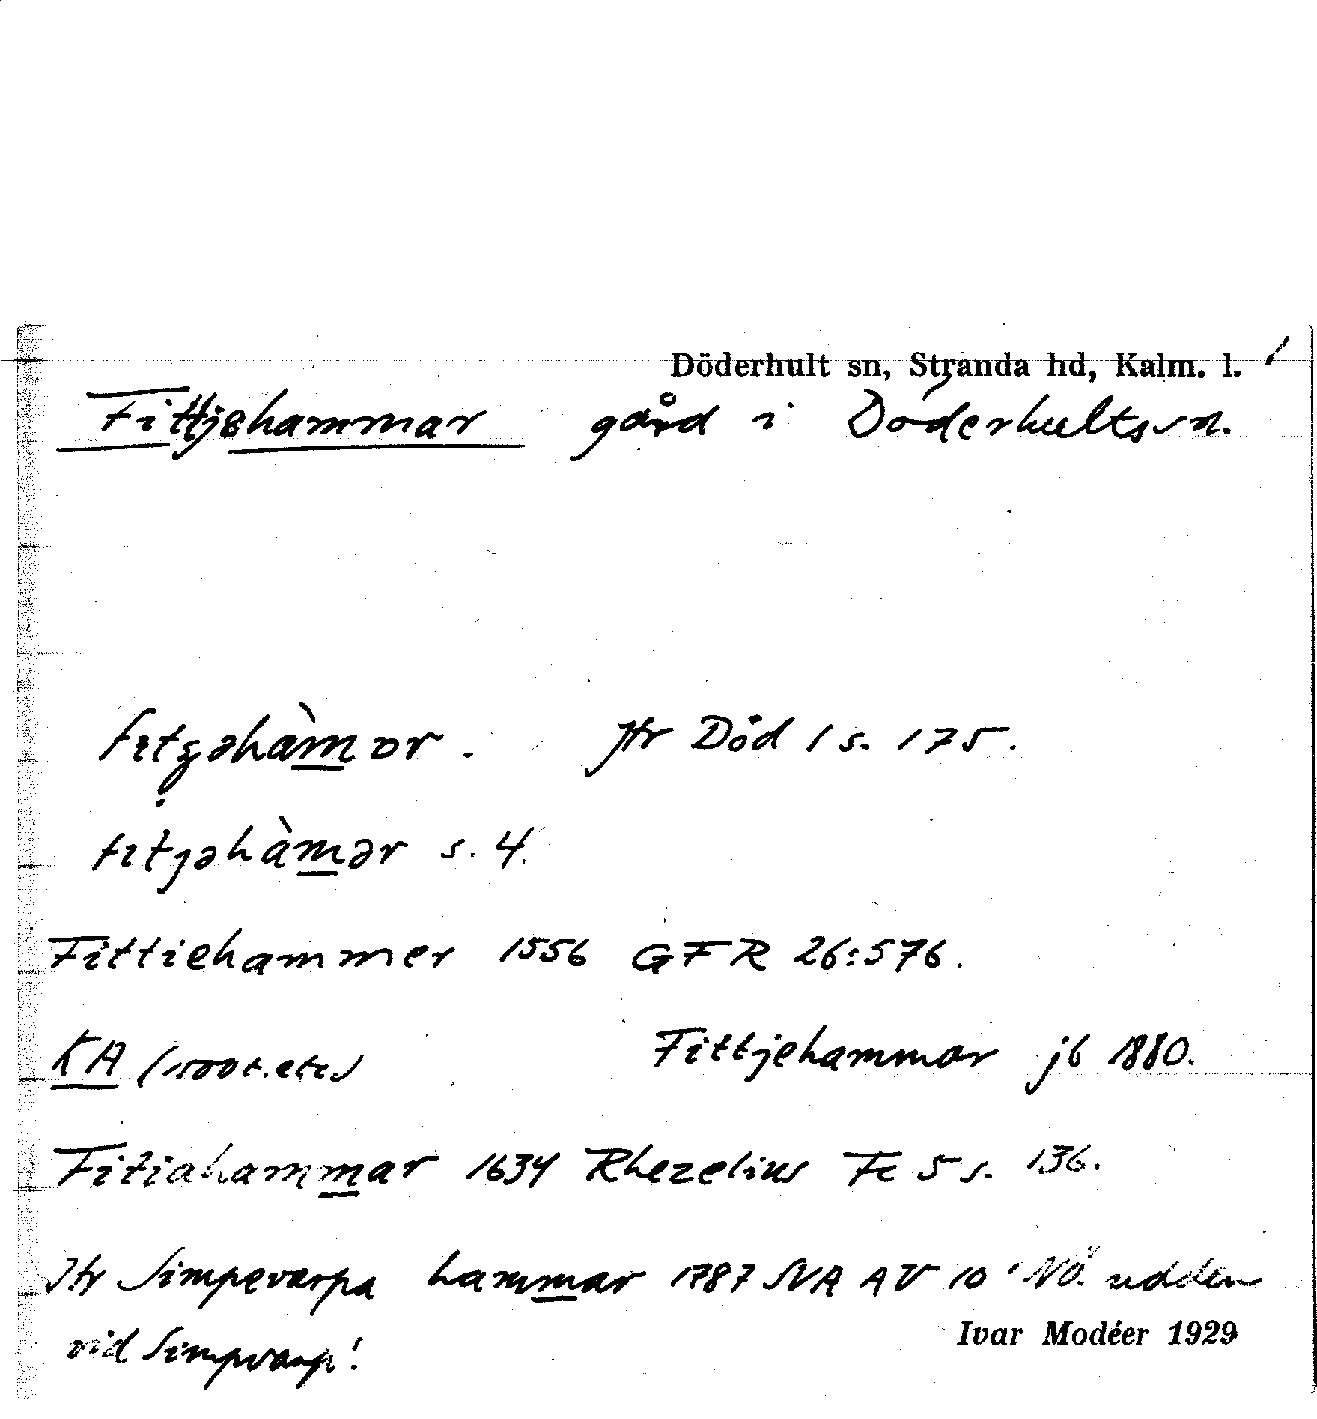 Döderhult sn, Stranda hd, Kalm. l.
Fittjehammar gård i Döderhults sn.
fıtjəhàmar. Jfr Död 1 s. 175.
fıtjəhàmər s. 4.
Fittiehammer 1556 GFR 26:576.
KA (1500 t. etc) Fittjehammar jb 1880.
Fitiahammar 1634 Rhezelius Fc 5 s. 136.
Jfr Simpevarpa hammar 1787 SVA AV 10 'NÖ. udden
vid Simpvarp!
Ivar Modéer 1929